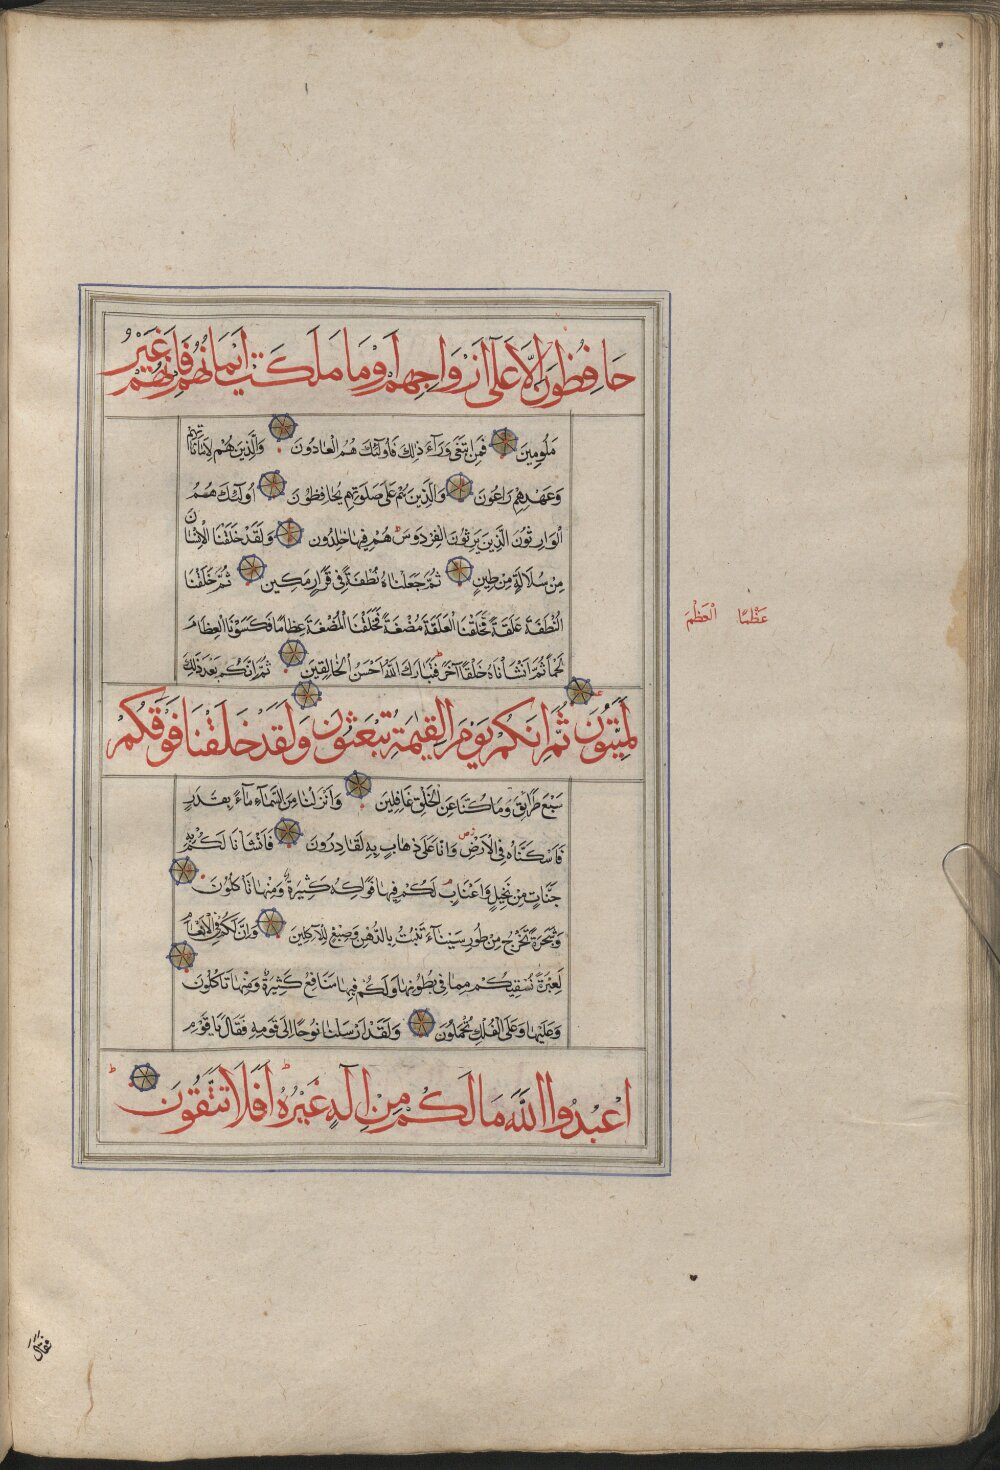 حَافِظُونَ اِلَّا عَلَى اَزْوَاجِهِمْ اَوْ مَا مَلَكَتْ اَيْمَانُهُمْ فَاِنَّهُمْ غَيْرُ
مَلُومِينَ فَمَنِ ابْتَغَى وَرَآءَ ذٰلِكَ فَاُولٰئِكَ هُمُ الْعَادُونَ وَالَّذِينَ هُمْ لِاَمَانَاتِهِمْ
وَعَهْدِهِمْ رَاعُونَ وَالَّذِينَ هُمْ عَلَى صَلَوَتِهِمْ يُحَافِظُونَ اُولٰئِكَ هُمُ
الْوَارِثُونَ الَّذِينَ يَرِثُونَ الْفِرْدَوْسَ هُمْ فِيهَا خَالِدُونَ وَلَقَدْ خَلَقْنَا الْاِنْسَانَ
مِنْ سُلَالَةٍ مِنْ طِينٍ ثُمَّ جَعَلْنَاهُ نُطْفَةً فِى قَرَارٍ مَكِينٍ ثُمَّ خَلَقْنَا
النُّطْفَةَ عَلَقَةً فَخَلَقْنَا الْعَلَقَةَ مُضْغَةً فَخَلَقْنَا الْمُضْغَةَ عِظَامًا فَكَسَوْنَا الْعِظَامَ
لَحْمًا ثُمَّ اَنْشَاْنَاهُ خَلْقًا آخَرَ فَتَبَارَكَ اللّٰهُ اَحْسَنُ الْخَالِقِينَ ثُمَّ اِنَّكُمْ بَعْدَ ذٰلِكَ
لَمَيِّتُونَ ثُمَّ اِنَّكُمْ يَوْمَ الْقِيٰمَةِ تُبْعَثُونَ وَلَقَدْ خَلَقْنَا فَوْقَكُمْ
سَبْعَ طَرَآئِقَ وَمَا كُنَّا عَنِ الْخَلْقِ غَافِلِينَ وَاَنْزَلْنَا مِنَ السَّمَآءِ مَآءً بِقَدَرٍ
فَاَسْكَنَّاهُ فِى الْاَرْضِ وَاِنَّا عَلَى ذَهَابٍ بِهِ لَقَادِرُونَ فَاَنْشَاْنَا لَكُمْ بِهِ
جَنَّاتٍ مِنْ نَخِيلٍ وَاَعْنَابٍ لَكُمْ فِيهَا فَوَاكِهُ كَثِيرَةٌ وَمِنْهَا تَاْكُلُونَ
وَشَجَرَةً تَخْرُجُ مِنْ طُورِ سَيْنَآءَ تَنْبُتُ بِالدُّهْنِ وَصِبْغٍ لِلْآكِلِينَ وَاِنَّ لَكُمْ فِى الْاَنْعَامِ
لَعِبْرَةً نُسْقِيكُمْ مِمَّا فِى بُطُونِهَا وَلَكُمْ فِيهَا مَنَافِعُ كَثِيرَةٌ وَمِنْهَا تَاْكُلُونَ
وَعَلَيْهَا وَعَلَى الْفُلْكِ تُحْمَلُونَ وَلَقَدْ اَرْسَلْنَا نُوحًا اِلَى قَوْمِهِ فَقَالَ يَا قَوْمِ
اعْبُدُوا اللّٰهَ مَا لَكُمْ مِنْ اِلٰهٍ غَيْرُهُ اَفَلَا تَتَّقُونَ
عَظْمًا الْعَظْمَ
فقال